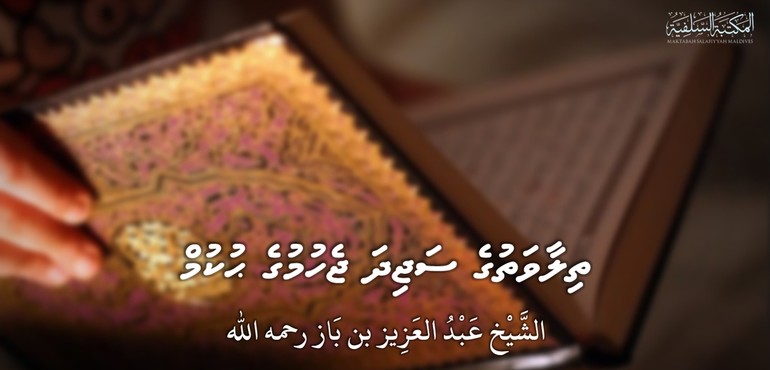 المكتبة السلفية
MAKTABAH SALAFIYYAH MALDIVES
ތިލާވަތުގެ ސަޖިދަ ޖެހުމުގެ ޙުކުމް
الشَّيْخ عَبْدُ العَزِيز بن بَاز رحمه الله